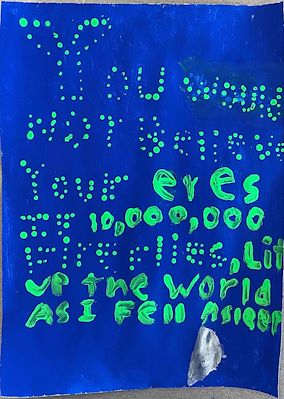 You would
NOT Believe
Your eyes
IF 10,000,000
Fireflies, Lit
UP the World
AS I Fell Asleep